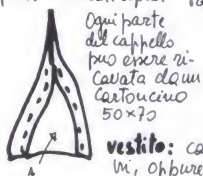 Ogni parte
del cappello
può essere ri-
cavata da un
cartoncino
50×70
vestito:
oppure